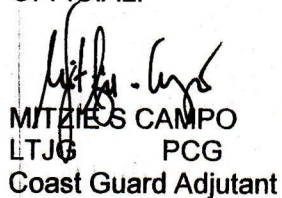 MITZIE S CAMPO
LTJG PCG
Coast Guard Adjutant